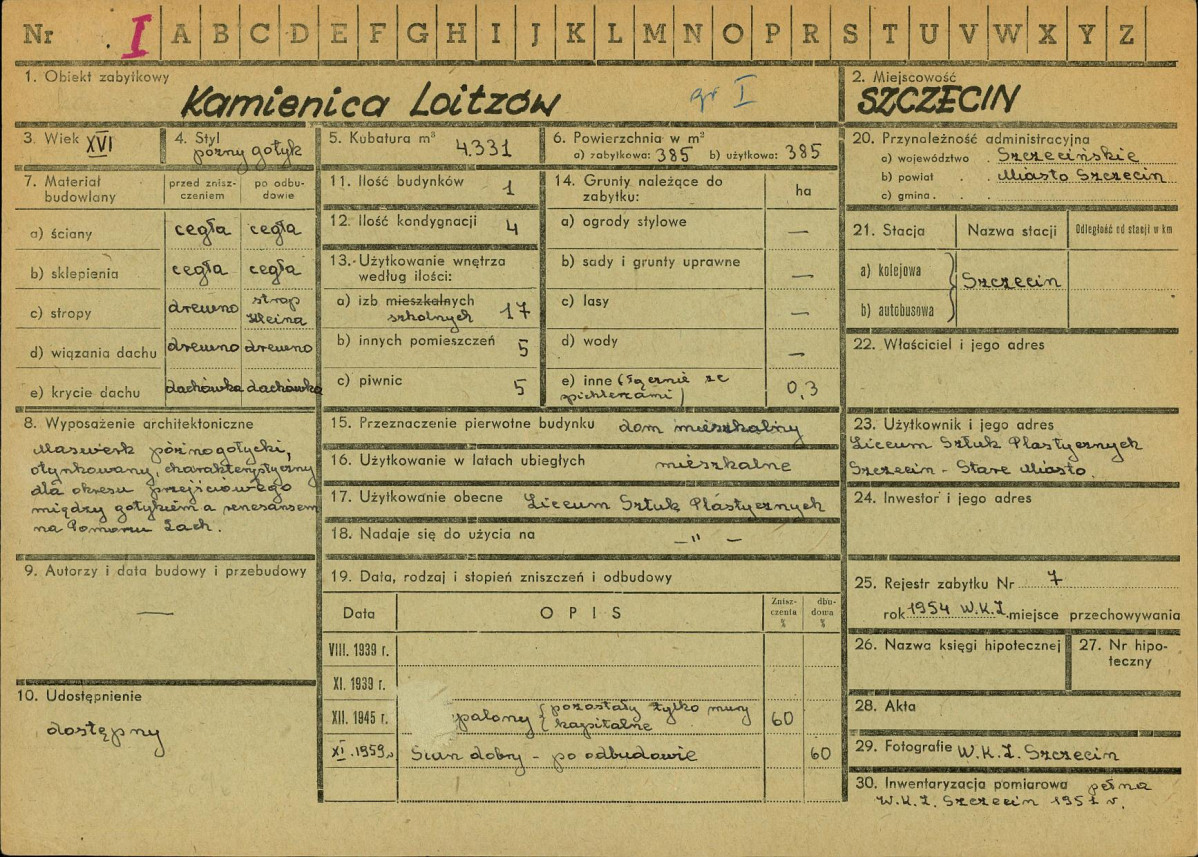 Nr I A B C D E F G H I J K L M N O P R S T U V W X Y Z
1. Obiekt zabytkowy
Kamienica Loitzów
gr I
2. Miejscowość
SZCZECIN
3. Wiek XVI
4. Styl
późny gotyk
5. Kubatura m³
4.331
6. Powierzchnia w m²
a) zabytkowa: 385 b) użytkowa: 385
7. Materiał budowlany
przed zniszczeniem
po odbudowie
a) ściany cegła cegła
b) sklepienia cegła cegła
c) stropy drewno strop Kleina
d) wiązania dachu drewno drewno
e) krycie dachu dachówka dachówka
8. Wyposażenie architektoniczne
Maswerk późnogotycki,
otynkowany, charakterystyczny
dla okresu przejściowego
między gotykiem a renesansem
na Pomorzu Zach.
9. Autorzy i data budowy i przebudowy
—
10. Udostępnienie
dostępny
11. Ilość budynków 1
12. Ilość kondygnacji 4
13. Użytkowanie wnętrza
według ilości:
a) izb mieszkalnych
szkolnych 17
b) innych pomieszczeń 5
c) piwnic 5
14. Grunty należące do
zabytku: ha
a) ogrody stylowe —
b) sady i grunty uprawne —
c) lasy —
d) wody —
e) inne (łącznie ze
spichlerzami) 0,3
15. Przeznaczenie pierwotne budynku dom mieszkalny
16. Użytkowanie w latach ubiegłych mieszkalne
17. Użytkowanie obecne Liceum Sztuk Plastycznych
18. Nadaje się do użycia na — " —
19. Data, rodzaj i stopień zniszczeń i odbudowy
Data OPIS Zniszczenia % dbudowa %
VIII. 1939 r.
XI. 1939 r.
XII. 1945 r. palony { pozostały tylko mury
kapitalne 60
XI. 1959 Stan dobry - po odbudowie 60
20. Przynależność administracyjna
a) województwo Szczecińskie
b) powiat Miasto Szczecin
c) gmina
21. Stacja Nazwa stacji Odległość od stacji w km
a) kolejowa
Szczecin
b) autobusowa
22. Właściciel i jego adres
23. Użytkownik i jego adres
Liceum Sztuk Plastycznych
Szczecin - Stare Miasto.
24. Inwestor i jego adres
25. Rejestr zabytku Nr 7
rok 1954 W.K.Z. miejsce przechowywania
26. Nazwa księgi hipotecznej
27. Nr hipoteczny
28. Akta
29. Fotografie W.K.Z. Szczecin
30. Inwentaryzacja pomiarowa pełna
W.K.Z. Szczecin r.